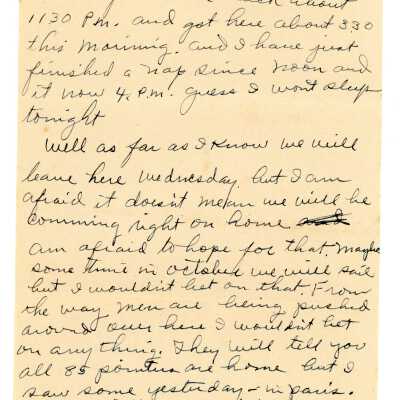 back about
1130 P.m. and got here about 330
this morning. and I have just
finished a nap since noon and
it now 4. P.M. guess I wont sleep
tonight
Well as far as I know we will
leave here Wednesday. but I am
afraid it doesn't mean we will be
comming right on home
am afraid to hope for that. Maybe
some time in october we will sail
but I wouldn't bet on that. From
the way men are being pushed
around over here I wouldn't bet
on any thing. They will tell you
all 85 pointers are home but I
saw some yesterday in paris.